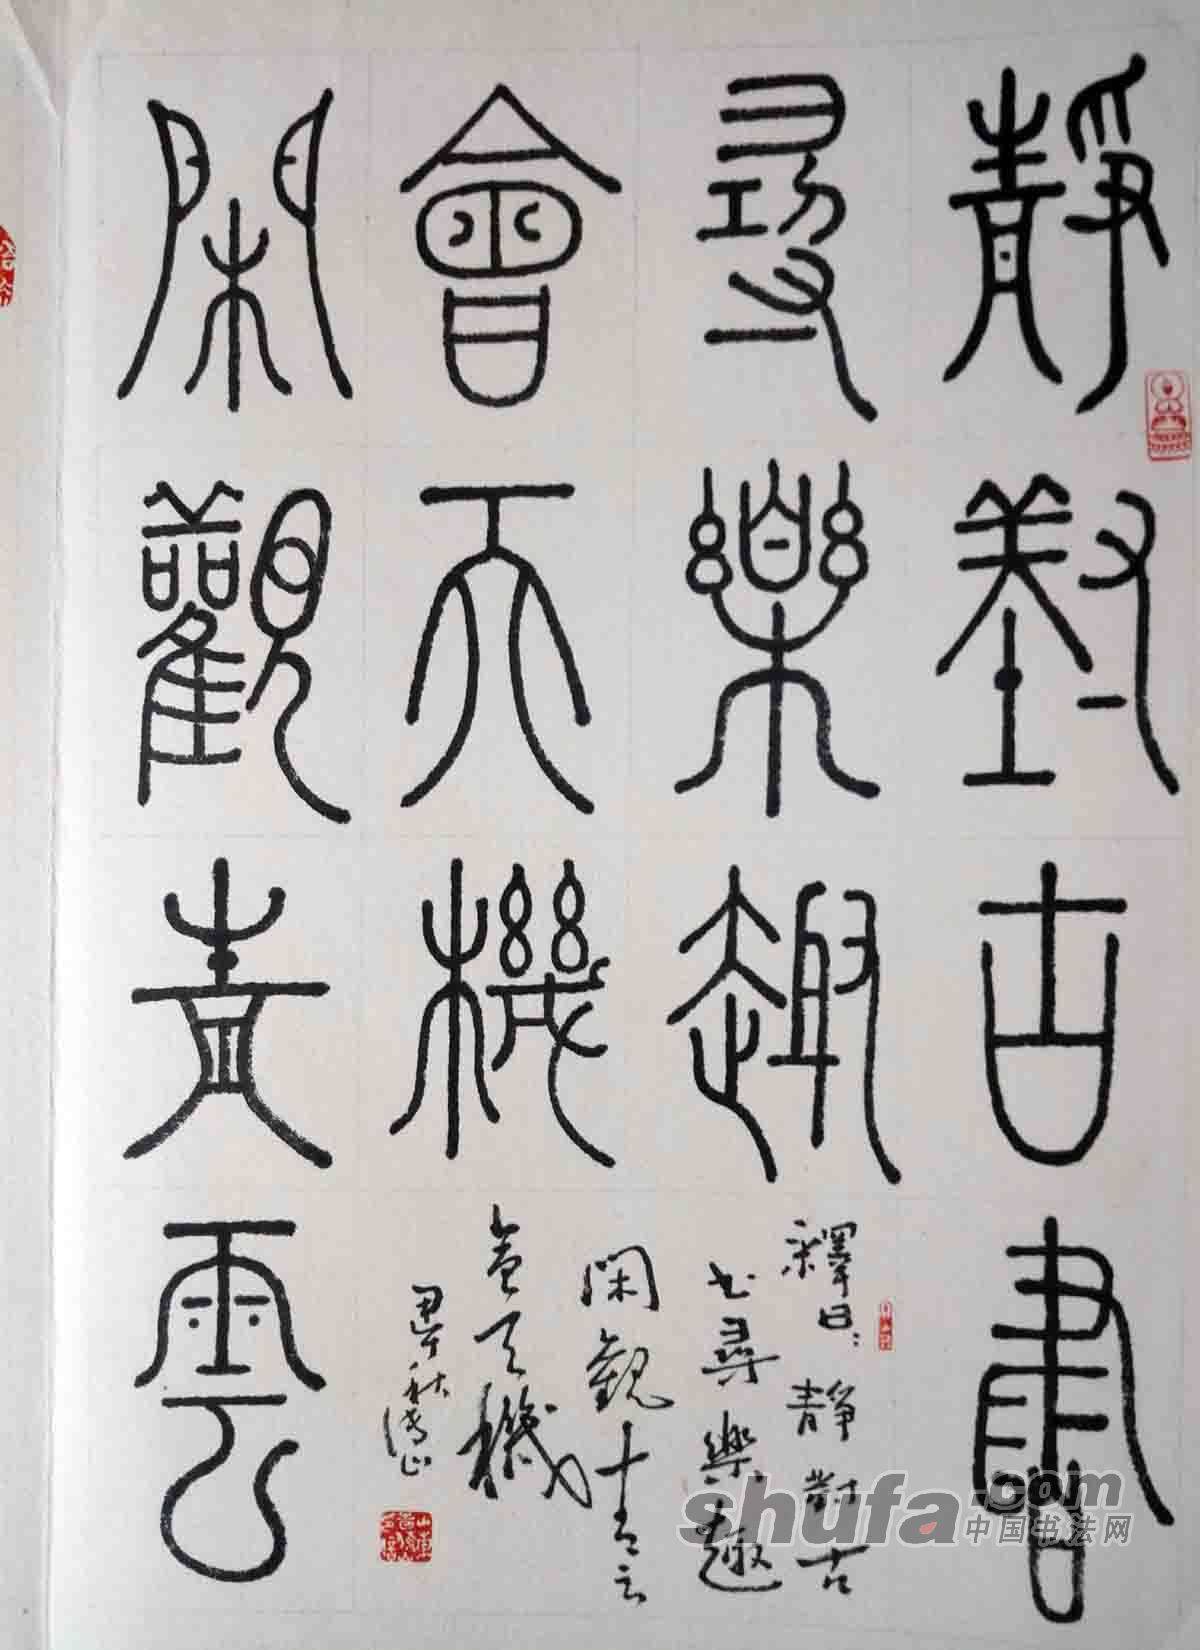 靜對古書
尋樂趣
閑觀青雲
會天機
釋曰:靜對古
书尋樂趣
閑觀青云
會天機
甲午秋
shufa.com
中国书法网